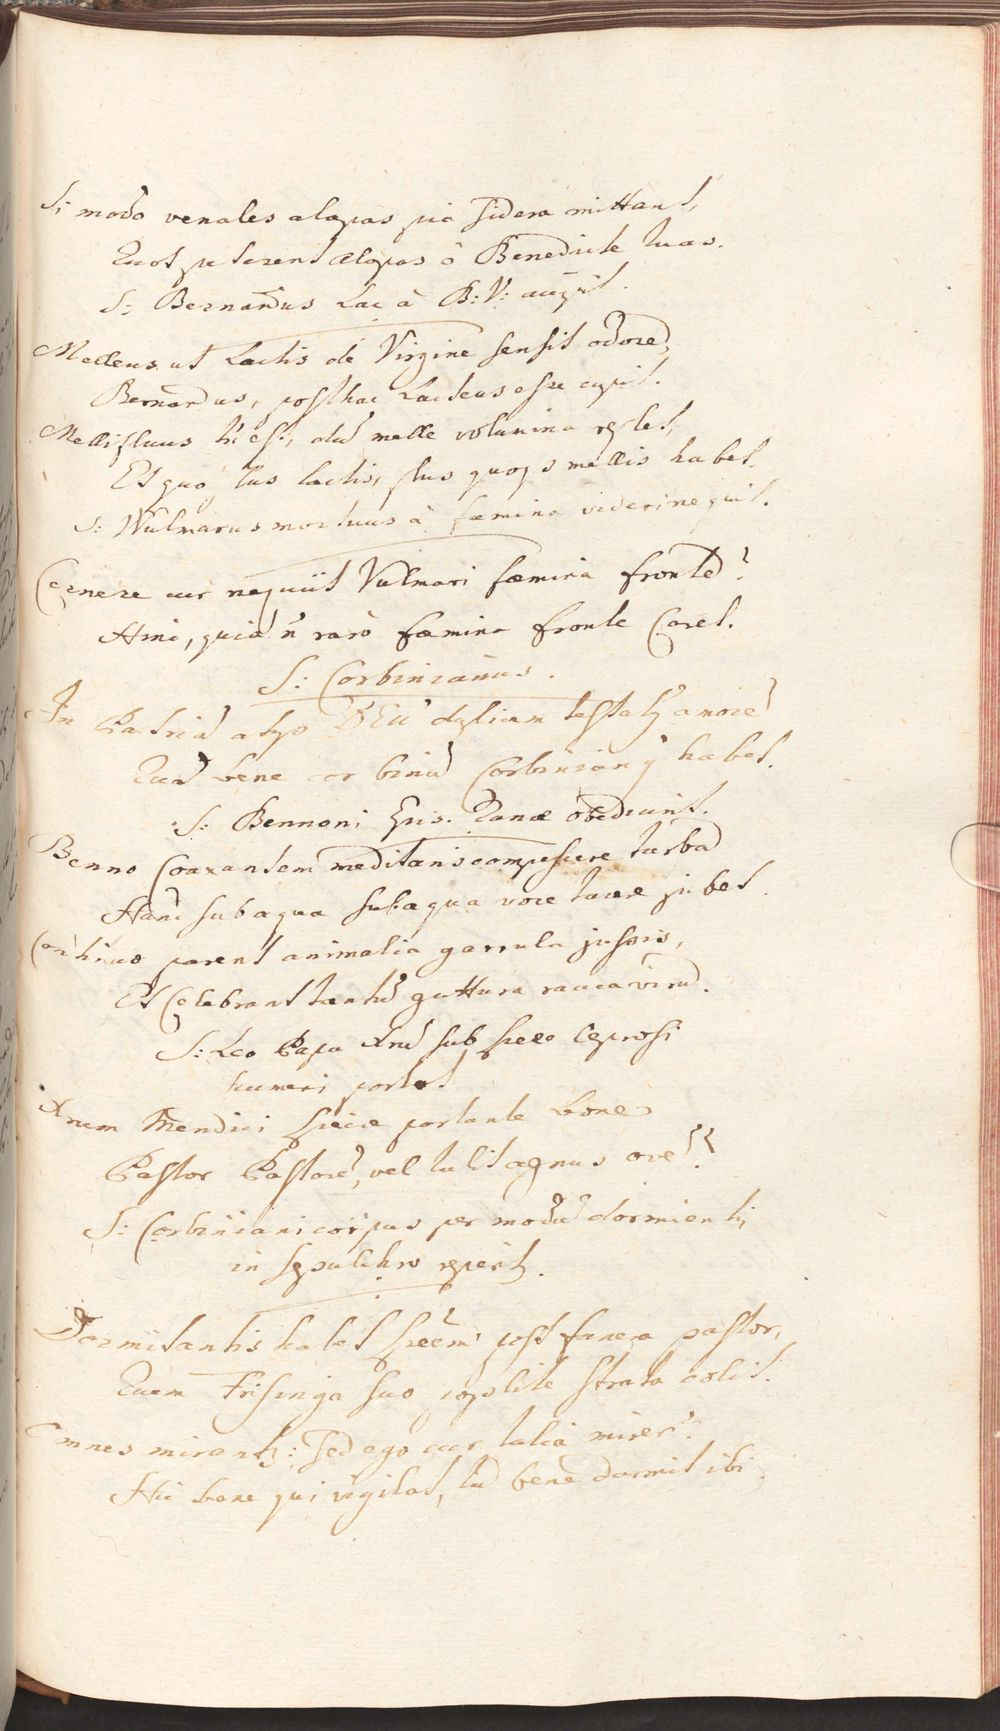 Si modo venales alapas pia Sidera mittant,
Quot peterent alapas ô Benedicte tuas.
S: Bernardus Lac à B: V: accipit.
Melleus ut Lactis de Virgine sensit odorē,
Bernardus, posthac Lacteus esse cupit.
Mellifluus hic est, dū melle volumina replet,
Et quo plus lactis, plus quoqȝ mellis habet.
S: Wulmarus mortuus à fæmina videri nequit.
Cernere cur nequiit Vulmari fæmina frontē?
Hinc, quia n̄ rarò fæmina fronte Caret.
S: Corbinianus.
In Patriā atqȝ DEŪ duplicem testatꝫ amorē
Quā bene cor binū Corbinianꝰ habet.
S: Bennoni Epis. Ranæ obediunt.
Benno Coaxantem meditans compescere turbā
Hanc sub aqua sub aqua voce tacere jubet.
Continuo parent animalia garrula jussis,
Et Celebrant tantū guttura rauca virū.
S: Leo Papa Xrm̄ sub specie leprosi
humeri portat
Xrum Mendici specie portante Leone
Pastor Pastorē, vel tulit agnus ovē?
S: Corbiniani corpus per modū dormientis
in sepulchro reperitꝫ.
Dormitantis habet speciem post funera pastor,
Quem Frisinga suo poplite strata colit.
Omnes mirantꝫ: Sed ego cur talia mirer?
Hic bene qui vigilat, tū bene dormit ibi.